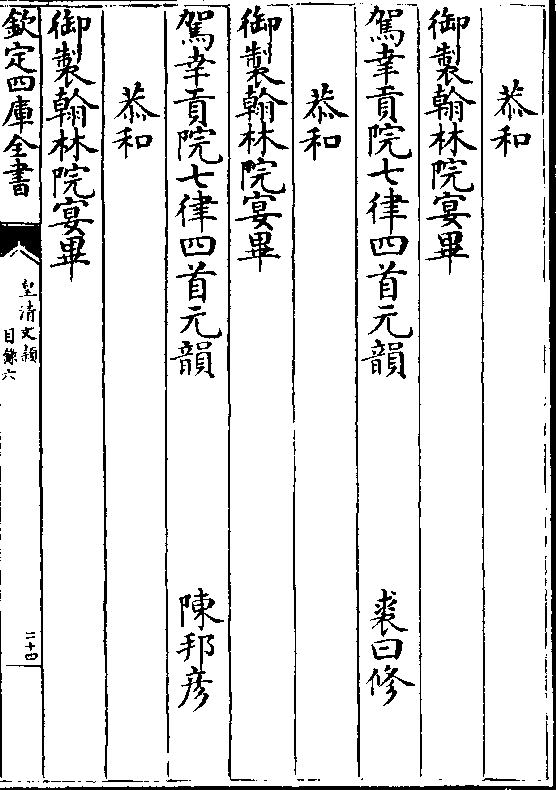 恭和
御製翰林院宴畢
駕幸貢院七律四首元韻　裘曰修
恭和
御製翰林院宴畢
駕幸貢院七律四首元韻　陳邦彦
恭和
御製翰林院宴畢
欽定四庫全書
皇清文穎
目錄六
二十四